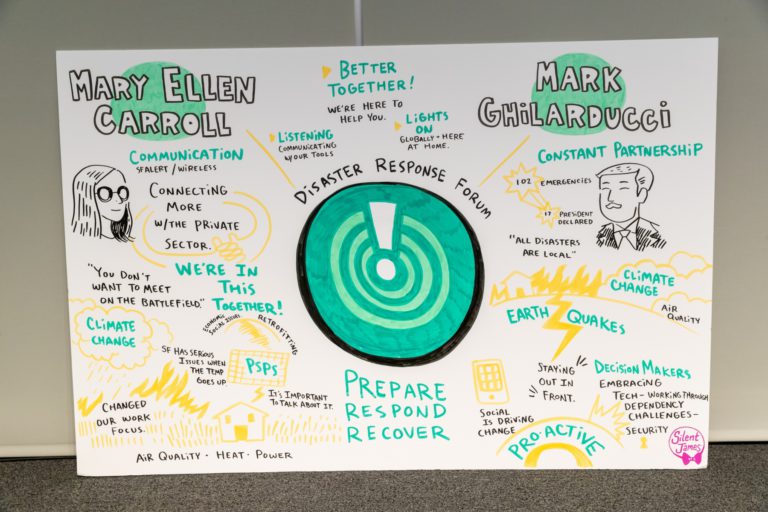 MARY ELLEN
CARROLL
COMMUNICATION
SFALERT / WIRELESS
CONNECTING
MORE
W/THE PRIVATE
SECTOR.
"YOU DON'T
WANT TO MEET
ON THE BATTLEFIELD."
WE'RE IN
THIS
TOGETHER!
CLIMATE
CHANGE
ECONOMIC
SOCIAL ISSUES
RETROFITTING
SF HAS SERIOUS
ISSUES WHEN
THE TEMP
GOES UP
PSPs
IT'S IMPORTANT
TO TALK ABOUT IT.
CHANGED
OUR WORK
FOCUS.
AIR QUALITY • HEAT • POWER
BETTER
TOGETHER!
WE'RE HERE TO
HELP YOU.
LISTENING
COMMUNICATING
W/OUR TOOLS
LIGHTS
ON
GLOBALLY + HERE
AT HOME.
DISASTER RESPONSE FORUM
PREPARE
RESPOND
RECOVER
MARK
GHILARDUCCI
CONSTANT PARTNERSHIP
102 EMERGENCIES
17 PRESIDENT
DECLARED
"ALL DISASTERS
ARE LOCAL"
CLIMATE
CHANGE
AIR
QUALITY
EARTH QUAKES
STAYING
OUT IN
FRONT.
SOCIAL
IS DRIVING
CHANGE
PRO-ACTIVE
DECISION MAKERS
EMBRACING
TECH - WORKING THROUGH
DEPENDENCY
CHALLENGES-
SECURITY
Silent
James